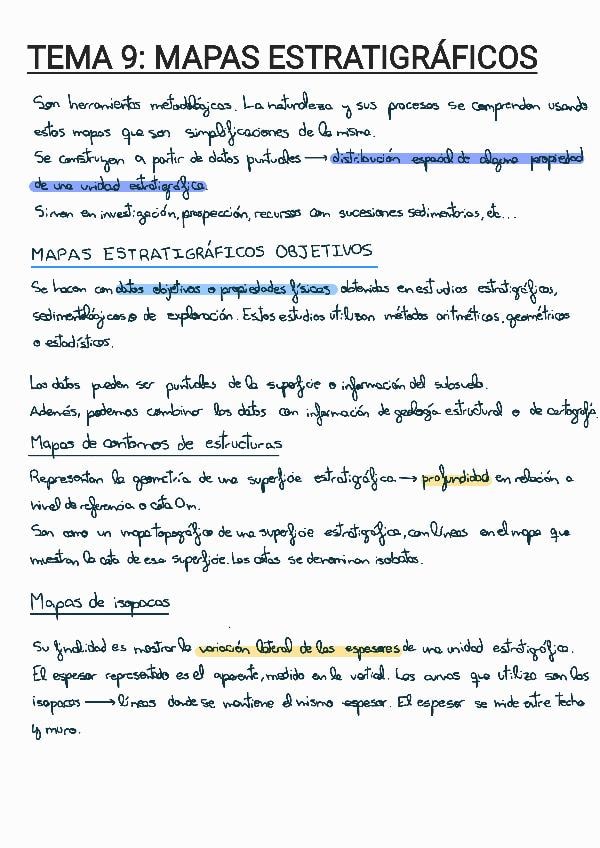 TEMA 9: MAPAS ESTRATIGRÁFICOS
Son herramientas metodológicas. La naturaleza y sus procesos se comprenden usando
estos mapas que son simplificaciones de la misma.
Se construyen a partir de datos puntuales → distribución espacial de alguna propiedad
de una unidad estratigráfica.
Sirven en investigación, prospección, recursos con sucesiones sedimentarias, etc...
MAPAS ESTRATIGRÁFICOS OBJETIVOS
Se hacen con datos objetivos o propiedades físicas obtenidas en estudios estratigráficos,
sedimentológicos o de exploración. Estos estudios utilizan métodos aritméticos, geométricos
o estadísticos.
Los datos pueden ser puntuales de la superficie o información del subsuelo.
Además, podemos combinar los datos con información de geología estructural o de cartografía.
Mapas de contornos de estructuras
Representan la geometría de una superficie estratigráfica → profundidad en relación a
nivel de referencia o cota 0m.
Son como un mapa topográfico de una superficie estratigráfica, con líneas en el mapa que
muestran la cota de esa superficie. Las cotas se denominan isobatas.
Mapas de isopacas
Su finalidad es mostrar la variación lateral de los espesores de una unidad estratigráfica.
El espesor representado es el aparente, medido en la vertical. Las curvas que utiliza son las
isopacas → líneas donde se mantiene el mismo espesor. El espesor se mide entre techo
y muro.